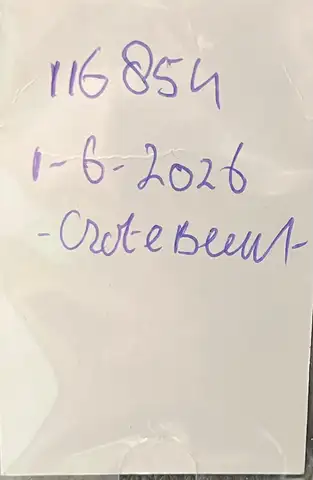 116854
1-6-2026